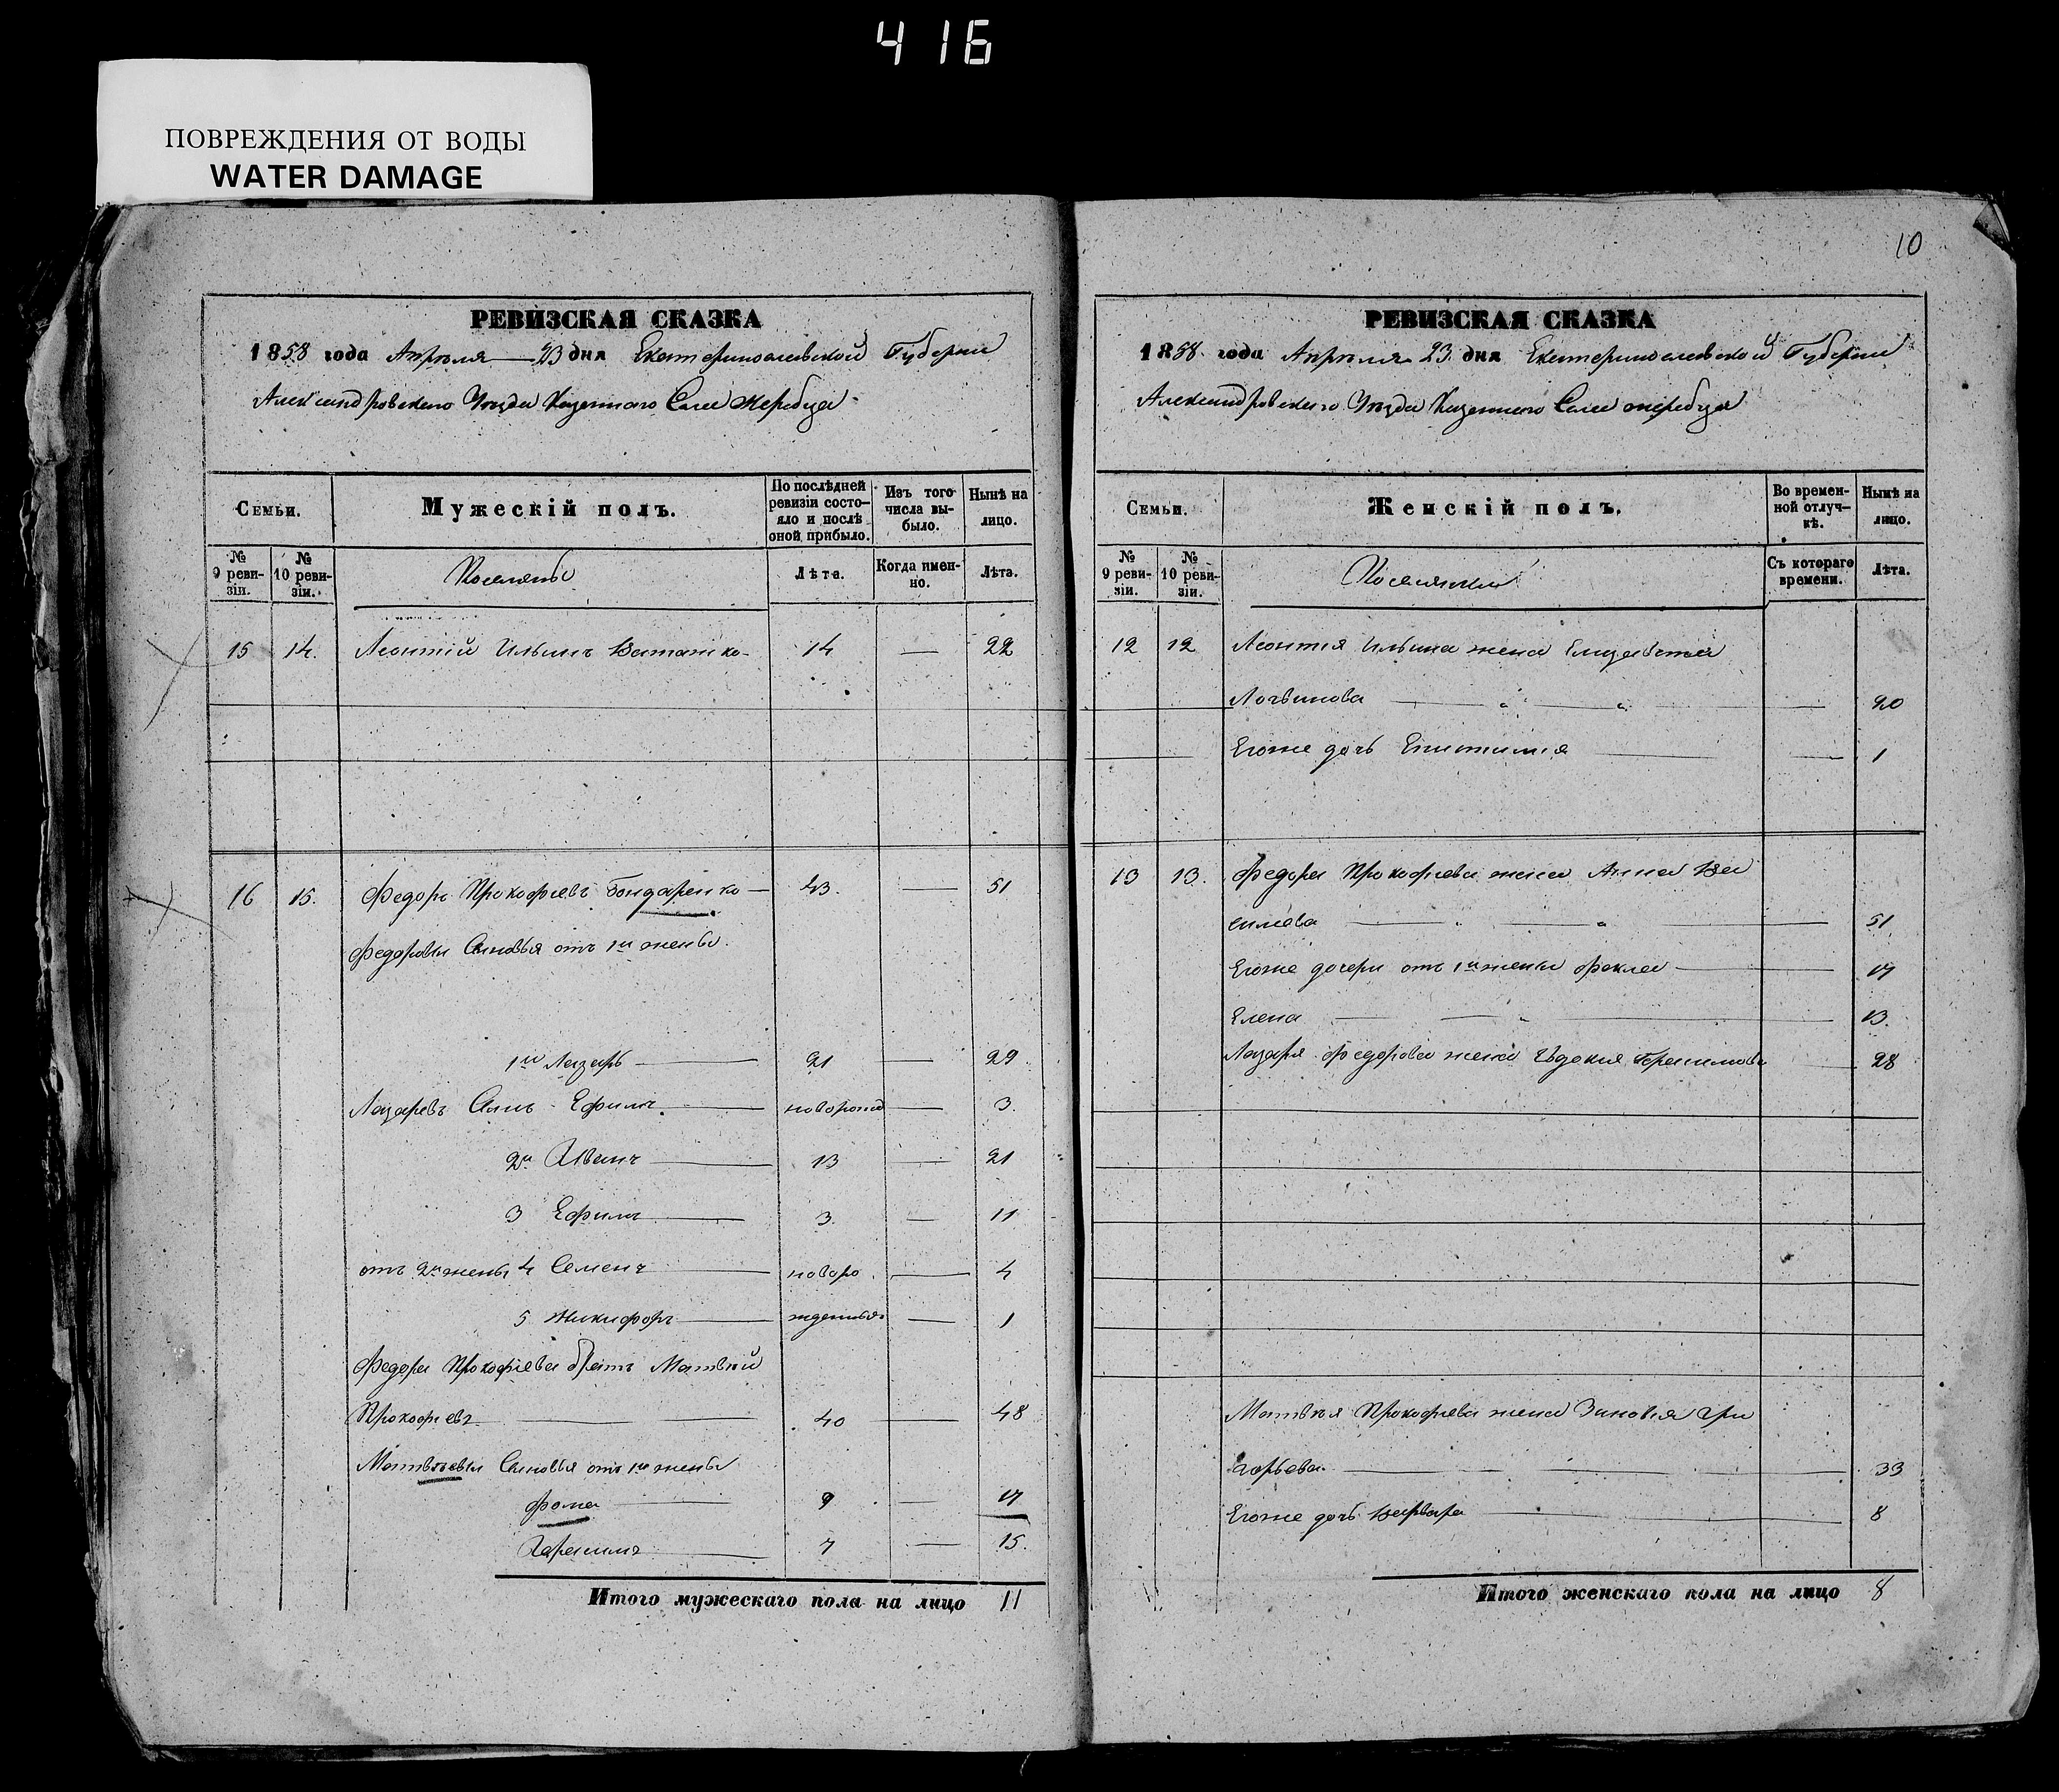 416
ПОВРЕЖДЕНИЯ ОТ ВОДЫ
WATER DAMAGE
РЕВИЗСКАЯ СКАЗКА
1858 года Апрѣля 23 дня Екатеринославской Губернии
Александровского Уѣзда Казенного Села Жеребца
Семьи.
Мужескій полъ.
По послѣдней ревизіи состояло и послѣ оной прибыло.
Изъ того числа выбыло.
Нынѣ на лицо.
№ 9 ревизіи.
№ 10 ревизіи.
Поселяне
Лѣта.
Когда именно.
Лѣта.
15 14. Леонтий Ильинъ 14 — 22
16 15. Федоръ Прокофиевъ Бондаренко — 43. — 51
Федоровы Сыновья отъ 1й жены.
1й Лазарь — 21 — 29
Лазаревъ Сынъ Ефимъ — новорожд — 3.
2й Иванъ — 13 — 21
3 Ефимъ — 3. — 11
отъ 2й жены 4 Семенъ — новоро — 4
5 Никифоръ — жденныя — 1
Федора Прокофиева братъ Матвѣй
Прокофиевъ — 40 — 48
Матвѣевы Сыновья отъ 1й жены
Фома — 9 — 17
Герасимъ — 7 — 15.
Итого мужескаго пола на лицо 11
10
РЕВИЗСКАЯ СКАЗКА
1858 года Апрѣля 23 дня Екатеринославской Губернии
Александровского Уѣзда Казенного Села Жеребца
Семьи.
Женскій полъ.
Во временной отлучкѣ.
Нынѣ на лицо.
№ 9 ревизіи.
№ 10 ревизіи.
Поселянки
Съ котораго времени.
Лѣта.
12 12 Леонтия Ильина жена Елизавета
Логвинова — 20
Егоже дочь Епистимия — 1
13 13. Федора Прокофиева жена Анна Ва
силева — 51
Егоже дочери отъ 1й жены Фекла — 17
Елена — 13.
Лазаря Федорова жена Евдокия Герасимова — 28
Матвѣя Прокофиева жена Зиновия Гри
горьева — 33
Егоже дочь Варвара — 8
Итого женскаго пола на лицо 8